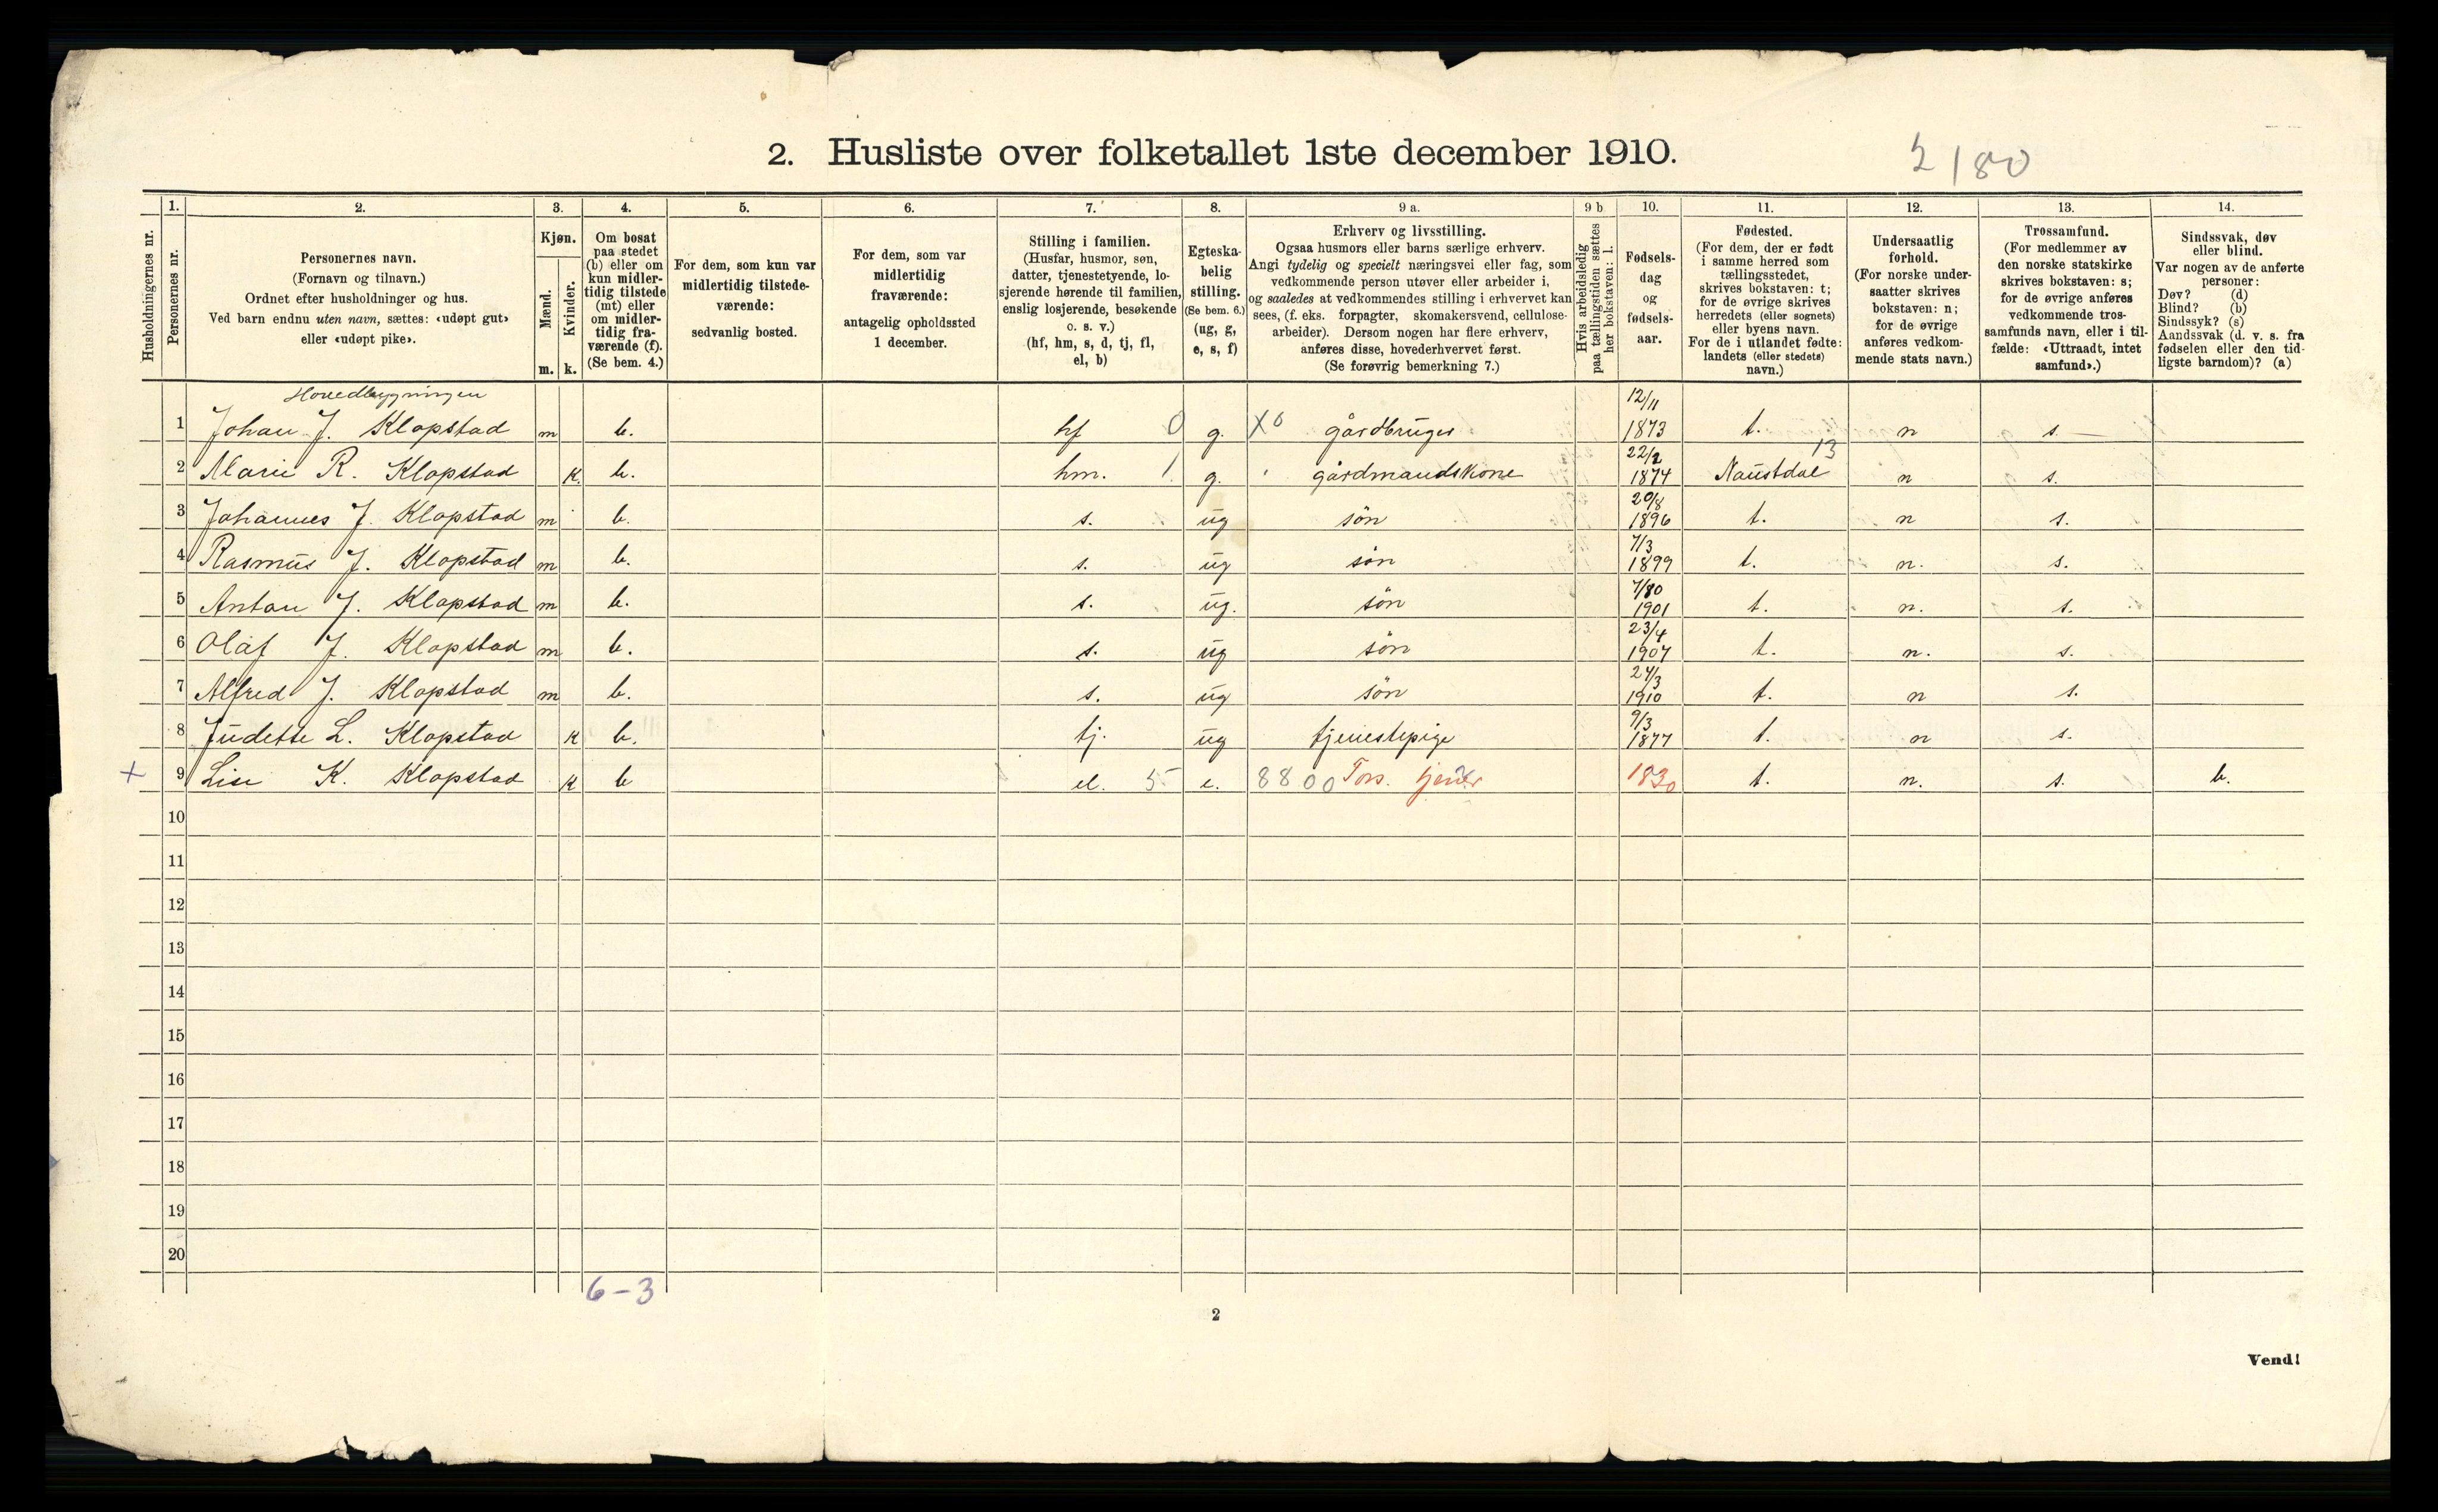 2. Husliste over folketallet 1ste december 1910.
2/80
Husholdningernes nr.
1.
Personernes nr.
2.
Personernes navn.
(Fornavn og tilnavn.)
Ordnet efter husholdninger og hus.
Ved barn endnu uten navn, sættes: «udøpt gut»
eller «udøpt pike».
3.
Kjøn.
Mænd.
m.
Kvinder.
k.
4.
Om bosat
paa stedet
(b) eller om
kun midler-
tidig tilstede
(mt) eller
om midler-
tidig fra-
værende (f).
(Se bem. 4.)
5.
For dem, som kun var
midlertidig tilstede-
værende:
sedvanlig bosted.
6.
For dem, som var
midlertidig
fraværende:
antagelig opholdssted
1 december.
7.
Stilling i familien.
(Husfar, husmor, søn,
datter, tjenestetyende, lo-
sjerende hørende til familien,
enslig losjerende, besøkende
o. s. v.)
(hf, hm, s, d, tj, fl,
el, b)
8.
Egteska-
belig
stilling.
(Se bem. 6.)
(ug, g,
e, s, f)
9 a.
Erhverv og livsstilling.
Ogsaa husmors eller barns særlige erhverv.
Angi tydelig og specielt næringsvei eller fag, som
vedkommende person utøver eller arbeider i,
og saaledes at vedkommendes stilling i erhvervet kan
sees, (f. eks. forpagter, skomakersvend, cellulose-
arbeider). Dersom nogen har flere erhverv,
anføres disse, hovederhvervet først.
(Se forøvrig bemerkning 7.)
9 b
Hvis arbeidsledig
paa tællingstiden sættes
her bokstaven: l.
10.
Fødsels-
dag
og
fødsels-
aar.
11.
Fødested.
(For dem, der er født
i samme herred som
tællingsstedet,
skrives bokstaven: t;
for de øvrige skrives
herredets (eller sognets)
eller byens navn.
For de i utlandet fødte:
landets (eller stedets)
navn.)
12.
Undersaatlig
forhold.
(For norske under-
saatter skrives
bokstaven: n;
for de øvrige
anføres vedkom-
mende stats navn.)
13.
Trossamfund.
(For medlemmer av
den norske statskirke
skrives bokstaven: s;
for de øvrige anføres
vedkommende tros-
samfunds navn, eller i til-
fælde: «Uttraadt, intet
samfund».)
14.
Sindssvak, døv
eller blind.
Var nogen av de anførte
personer:
Døv? (d)
Blind? (b)
Sindssyk? (s)
Aandssvak (d. v. s. fra
fødselen eller den tid-
ligste barndom)? (a)
Hovedbygningen
1 Johan J. Klopstad m b. hf 0 g. X0 gårdbruger 12/11 1873 t. n s.
2 Marie R. Klopstad k. b. hm. 1 g. gårdmandskone 22/2 1874 Naustdal 13 n s.
3 Johannes J. Klopstad m b. s. ug søn 20/8 1896 t. n s.
4 Rasmus J. Klopstad m b. s. ug søn 7/3 1899 t. n. s.
5 Anton J. Klopstad m b. s. ug. søn 7/80 1901 t. n. s.
6 Olaf J. Klopstad m b. s. ug søn 23/4 1907 t. n. s.
7 Alfred J. Klopstad m b. s. ug søn 24/3 1910 t. n s.
8 Judette L. Klopstad k b. tj. ug tjenestepige 9/3 1877 t. n s.
+ 9 Lise K. Klopstad k b el. 5 e. 8800 1830 t. n. s. b.
10
11
12
13
14
15
16
17
18
19
20
6-3
2
Vend!